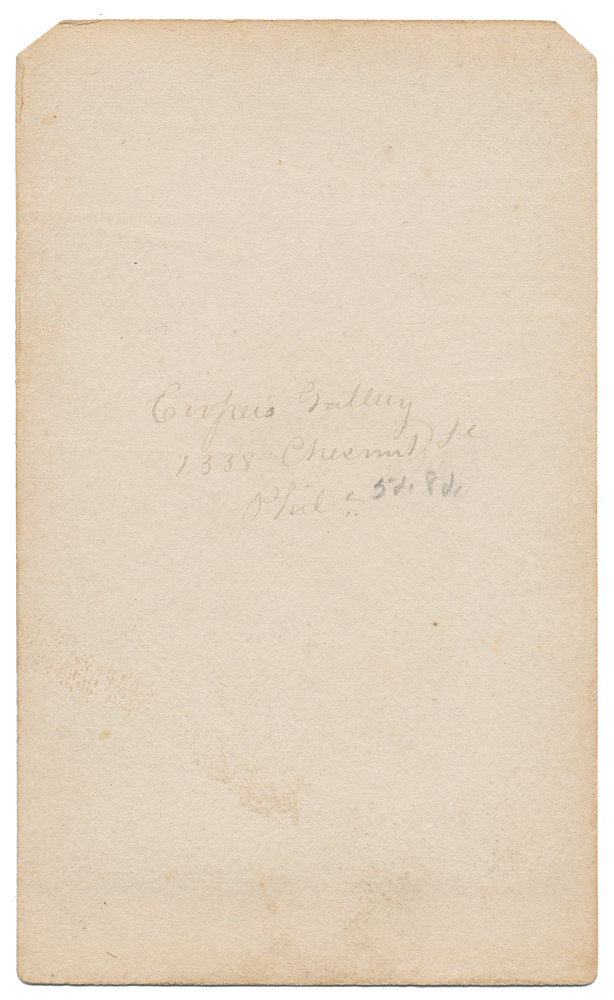 Cooper's Gallery
1338 Chesnut St
Phil a